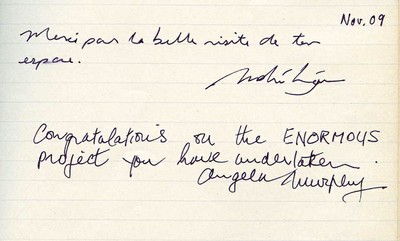 Nov. 09
Merci pour la belle visite de ton
espace.
Congratulations on the ENORMOUS
project you have undertaken.
Angela Murphy